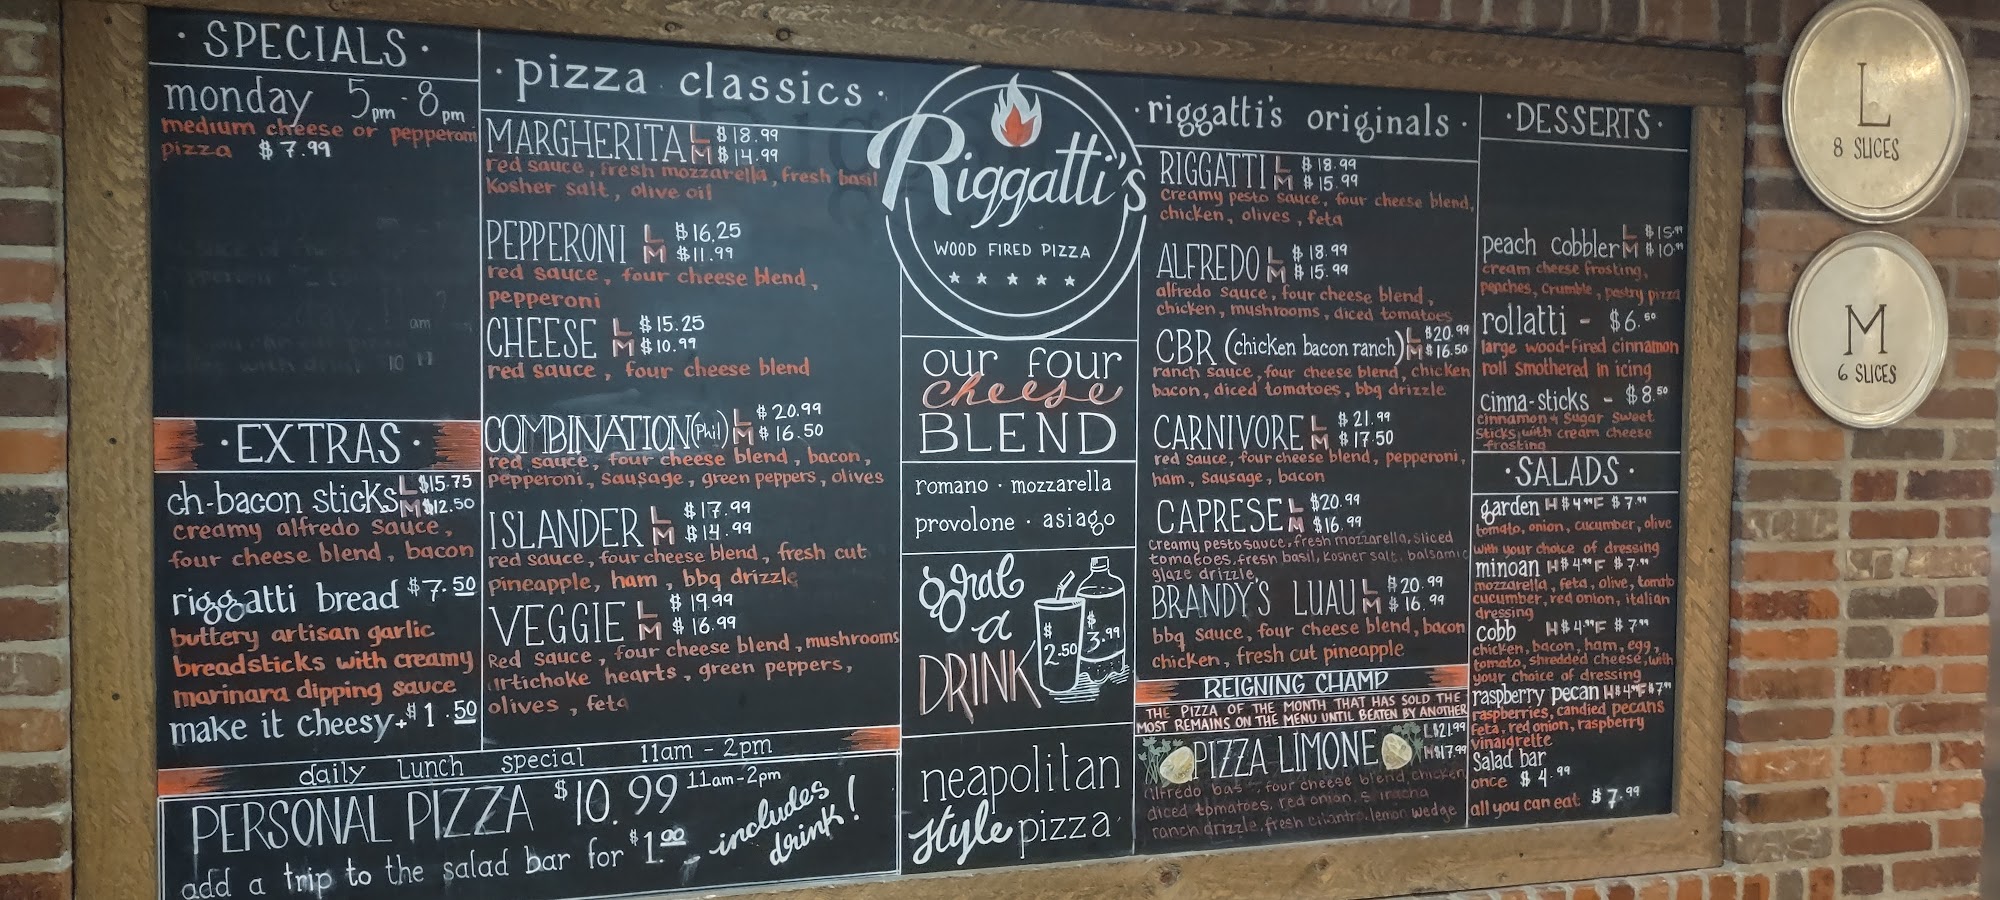 · SPECIALS ·
monday 5pm - 8pm
medium cheese or pepperoni
pizza $7.99
· EXTRAS ·
ch-bacon sticks L $15.75
M $12.50
creamy alfredo sauce,
four cheese blend, bacon
riggatti bread $7.50
buttery artisan garlic
breadsticks with creamy
marinara dipping sauce
make it cheesy +$1.50
daily lunch special 11am - 2pm
PERSONAL PIZZA $10.99 11am-2pm
add a trip to the salad bar for $1.00 - includes
drink!
· pizza classics ·
MARGHERITA L $18.99
M $14.99
red sauce, fresh mozzarella, fresh basil
Kosher salt, olive oil
PEPPERONI L $16.25
M $11.99
red sauce, four cheese blend,
pepperoni
CHEESE L $15.25
M $10.99
red sauce, four cheese blend
COMBINATION (Phil) L $20.99
M $16.50
red sauce, four cheese blend, bacon,
Pepperoni, sausage, green peppers, olives
ISLANDER L $17.99
M $14.99
red sauce, four cheese blend, fresh cut
pineapple, ham, bbq drizzle
VEGGIE L $19.99
M $16.99
Red sauce, four cheese blend, mushrooms
artichoke hearts, green peppers,
olives, feta
Riggatti's
WOOD FIRED PIZZA
our four
cheese
BLEND
romano · mozzarella
provolone · asiago
grab
a
DRINK
$2.50
$3.99
neapolitan
style pizza
· riggatti's originals ·
RIGGATTI L $18.99
M $15.99
Creamy pesto sauce, four cheese blend,
chicken, olives, feta
ALFREDO L $18.99
M $15.99
alfredo sauce, four cheese blend,
chicken, mushrooms, diced tomatoes
CBR (chicken bacon ranch) L $20.99
M $16.50
ranch sauce, four cheese blend, chicken
bacon, diced tomatoes, bbq drizzle
CARNIVORE L $21.99
M $17.50
red sauce, four cheese blend, pepperoni,
ham, sausage, bacon
CAPRESE L $20.99
M $16.99
creamy pesto sauce, fresh mozzarella, sliced
tomatoes, fresh basil, kosher salt, balsamic
glaze drizzle,
BRANDY'S LUAU L $20.99
M $16.99
bbq sauce, four cheese blend, bacon
chicken, fresh cut pineapple
REIGNING CHAMP
THE PIZZA OF THE MONTH THAT HAS SOLD THE
MOST REMAINS ON THE MENU UNTIL BEATEN BY ANOTHER
PIZZA LIMONE L $21.99
M $17.99
alfredo four cheese blend, chicken
diced tomatoes, red onion, sriracha
ranch drizzle, fresh cilantro, lemon wedge
· DESSERTS ·
peach cobbler L $15.99
M $10.99
cream cheese frosting,
peaches, crumble, pastry pizza
rollatti - $6.50
large wood-fired cinnamon
roll smothered in icing
cinna-sticks - $8.50
cinnamon & sugar sweet
sticks with cream cheese
frosting
· SALADS ·
garden H $4.99 F $7.99
tomato, onion, cucumber, olive
with your choice of dressing
minoan H $4.99 F $7.99
mozzarella, feta, olive, tomato
cucumber, red onion, italian
dressing
cobb H $4.99 F $7.99
chicken, bacon, ham, egg,
tomato, shredded cheese, with
your choice of dressing
raspberry pecan H $4.99 F $7.99
raspberries, candied pecans
feta, red onion, raspberry
vinaigrette
Salad bar
once $4.99
all you can eat $7.99
L
8 SLICES
M
6 SLICES